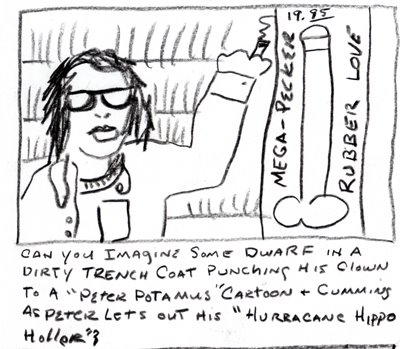 19.95
MEGA-PECKER
RUBBER LOVE
CAN YOU IMAGINE SOME DWARF IN A
DIRTY TRENCH COAT PUNCHING HIS CLOWN
TO A "PETER POTAMUS" CARTOON + CUMMING
AS PETER LETS OUT HIS "HURRACANE HIPPO
HOLLER"?